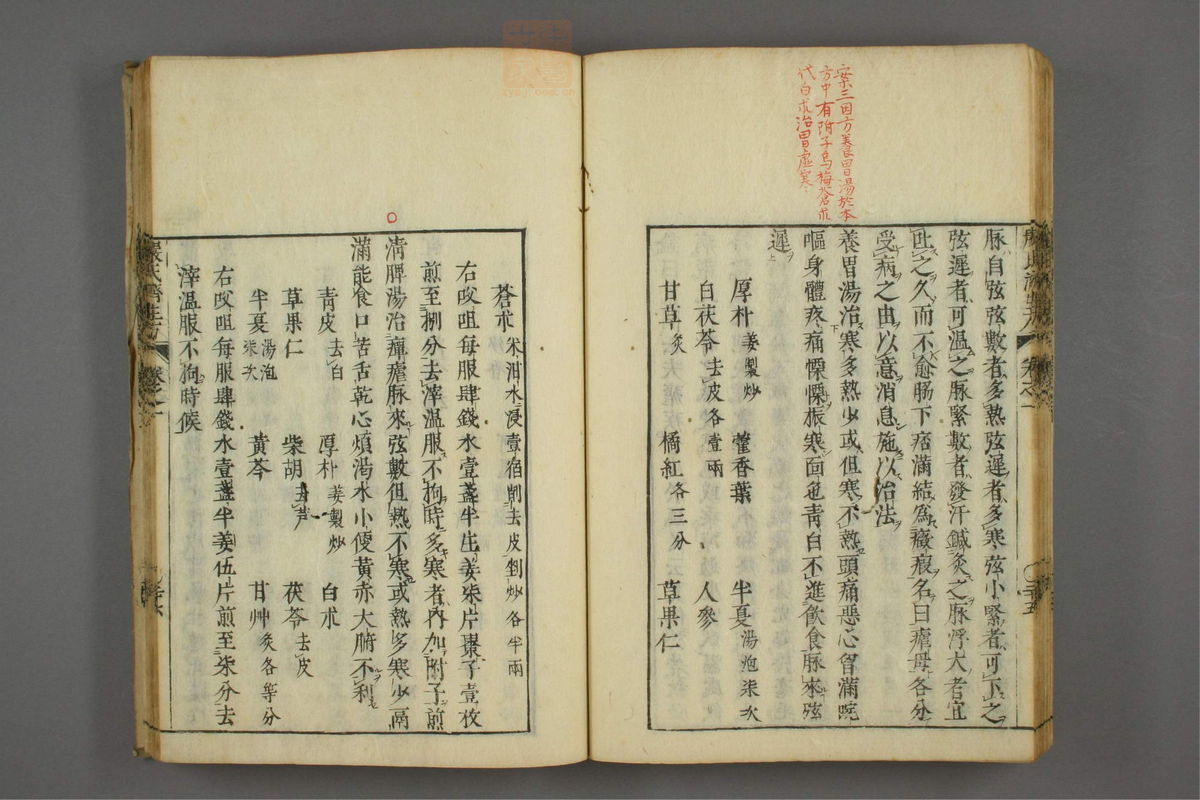 案三因方養胃湯於本
方中有附子烏梅蒼朮
代白朮治胃虛寒
脉自弦弦數者多熱弦遲者多寒弦小緊者可下之
弦遲者可溫之脉緊數者發汗鍼灸之脉浮大者宜
吐之久而不愈肠下痞滿結為癥瘕名曰瘧母各分
受病之由以意消息施以治法
養胃湯治寒多熱少或但寒不熱頭痛惡心胷滿腕
嘔身體疼痛慄慄振寒面色青白不進飲食脉來弦
遲
厚朴 姜製炒 藿香葉 半夏 湯炮柒次
白茯苓 去皮各壹兩 人參
甘草 炙 橘紅 各三分 草果仁
蒼朮 米泔水浸壹宿削去皮剉炒各半兩
右㕮咀每服肆錢水壹盞半生姜柒片棗子壹枚
煎至捌分去滓溫服不拘時多寒者內加附子煎
清脾湯治癉瘧脉來弦數但熱不寒或熱多寒少膈
滿能食口苦舌乾心煩渴水小便黃赤大腑不利
青皮 去白 厚朴 姜製炒 白朮
草果仁 柴胡 去芦 茯苓 去皮
半夏 湯泡柒次 黃芩 甘艸 炙各等分
右㕮咀每服肆錢水壹盞半姜伍片煎至柒分去
滓溫服不拘時候
嚴氏濟生方 卷之一